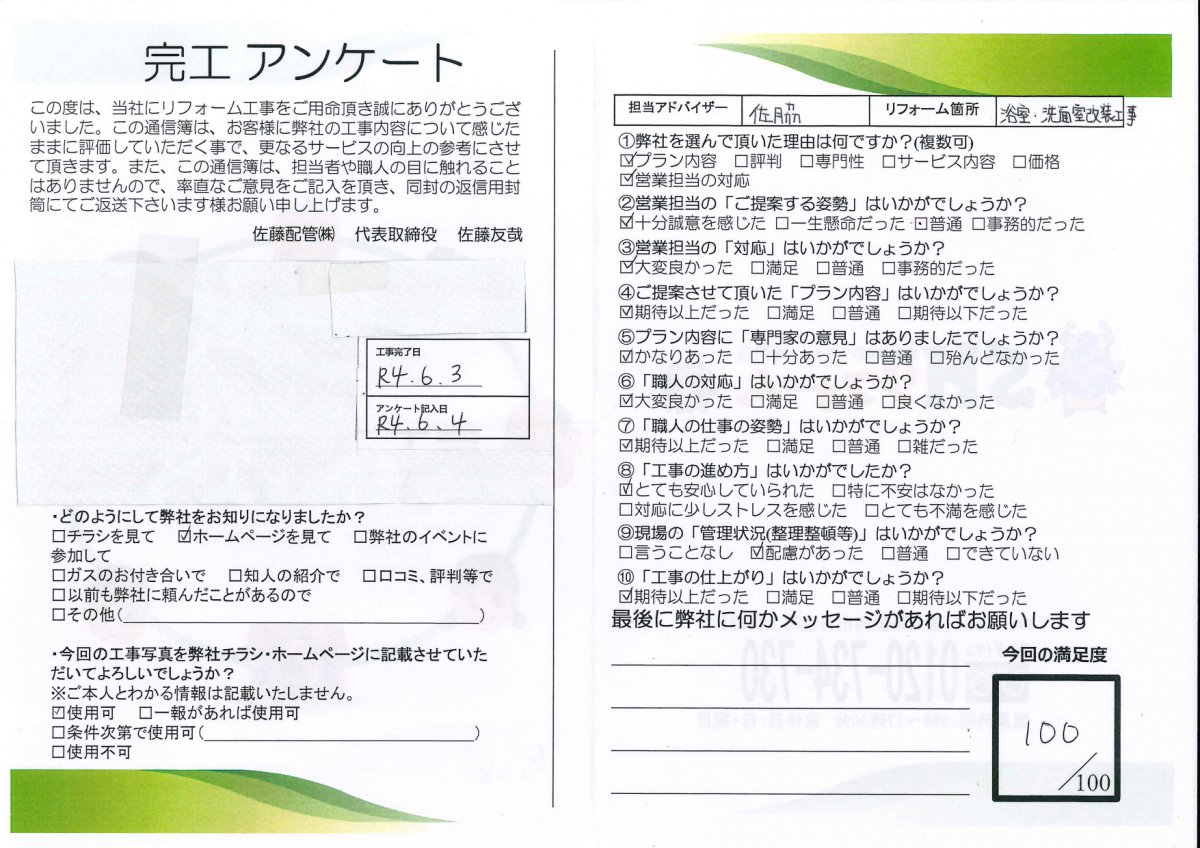 完工 アンケート
この度は、当社にリフォーム工事をご用命頂き誠にありがとうござ
いました。この通信簿は、お客様に弊社の工事内容について感じた
ままに評価していただく事で、更なるサービスの向上の参考にさせ
て頂きます。また、この通信簿は、担当者や職人の目に触れること
はありませんので、率直なご意見をご記入を頂き、同封の返信用封
筒にてご返送下さいます様お願い申し上げます。
佐藤配管㈱ 代表取締役 佐藤友哉
工事完了日
R4.6.3
アンケート記入日
R4.6.4
・どのようにして弊社をお知りになりましたか?
□チラシを見て ☑ホームページを見て □弊社のイベントに
参加して
□ガスのお付き合いで □知人の紹介で □口コミ、評判等で
□以前も弊社に頼んだことがあるので
□その他( )
・今回の工事写真を弊社チラシ・ホームページに記載させていた
だいてよろしいでしょうか?
※ご本人とわかる情報は記載いたしません。
☑使用可 □一報があれば使用可
□条件次第で使用可( )
□使用不可
担当アドバイザー 佐脇 リフォーム箇所 浴室・洗面室改装工事
①弊社を選んで頂いた理由は何ですか?(複数可)
☑プラン内容 □評判 □専門性 □サービス内容 □価格
☑営業担当の対応
②営業担当の「ご提案する姿勢」はいかがでしょうか?
☑十分誠意を感じた □一生懸命だった □普通 □事務的だった
③営業担当の「対応」はいかがでしょうか?
☑大変良かった □満足 □普通 □事務的だった
④ご提案させて頂いた「プラン内容」はいかがでしょうか?
☑期待以上だった □満足 □普通 □期待以下だった
⑤プラン内容に「専門家の意見」はありましたでしょうか?
☑かなりあった □十分あった □普通 □殆んどなかった
⑥「職人の対応」はいかがでしょうか?
☑大変良かった □満足 □普通 □良くなかった
⑦「職人の仕事の姿勢」はいかがでしょうか?
☑期待以上だった □満足 □普通 □雑だった
⑧「工事の進め方」はいかがでしたか?
☑とても安心していられた □特に不安はなかった
□対応に少しストレスを感じた □とても不満を感じた
⑨現場の「管理状況(整理整頓等)」はいかがでしょうか?
□言うことなし ☑配慮があった □普通 □できていない
⑩「工事の仕上がり」はいかがでしょうか?
☑期待以上だった □満足 □普通 □期待以下だった
最後に弊社に何かメッセージがあればお願いします
今回の満足度
100
/100